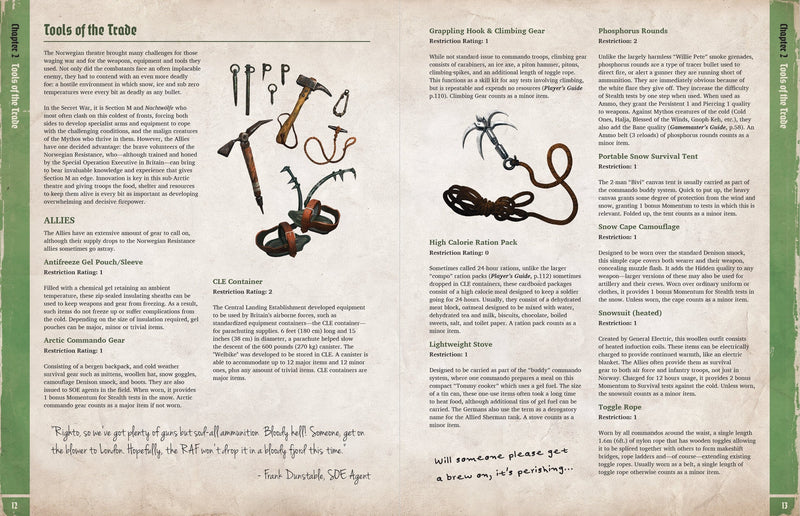 Chapter 2
Tools of the Trade
Tools of the Trade
The Norwegian theatre brought many challenges for those
waging war and for the weapons, equipment and tools they
used. Not only did the combatants face an often implacable
enemy, they had to contend with an even more deadly
foe: a hostile environment in which snow, ice and sub zero
temperatures were every bit as deadly as any bullet.
In the Secret War, it is Section M and Nachtwölfe who
most often clash on this coldest of fronts, forcing both
sides to develop specialist arms and equipment to cope
with the challenging conditions, and the malign creatures
of the Mythos who thrive in them. However, the Allies
have one decided advantage: the brave volunteers of the
Norwegian Resistance, who—although trained and honed
by the Special Operation Executive in Britain—can bring
to bear invaluable knowledge and experience that gives
Section M an edge. Innovation is key in this sub-Arctic
theatre and giving troops the food, shelter and resources
to keep them alive is every bit as important as developing
overwhelming and decisive firepower.
ALLIES
The Allies have an extensive amount of gear to call on,
although their supply drops to the Norwegian Resistance
allies sometimes go astray.
Antifreeze Gel Pouch/Sleeve
Restriction Rating: 1
Filled with a chemical gel retaining an ambient
temperature, these zip-sealed insulating sheaths can be
used to keep weapons and gear from freezing. As a result,
such items do not freeze up or suffer complications from
the cold. Depending on the size of insulation required, gel
pouches can be major, minor or trivial items.
Arctic Commando Gear
Restriction Rating: 1
Consisting of a bergen backpack, and cold weather
survival gear such as mittens, woollen hat, snow goggles,
camouflage Denison smock, and boots. They are also
issued to SOE agents in the field. When worn, it provides
1 bonus Momentum for Stealth tests in the snow. Arctic
commando gear counts as a major item if not worn.
CLE Container
Restriction Rating: 2
The Central Landing Establishment developed equipment
to be used by Britain's airborne forces, such as
standardized equipment containers—the CLE container—
for parachuting supplies. 6 feet (180 cm) long and 15
inches (38 cm) in diameter, a parachute helped slow
the descent of the 600 pounds (270 kg) canister. The
"Welbike" was developed to be stored in CLE. A canister is
able to accommodate up to 12 major items and 12 minor
ones, plus any amount of trivial items. CLE containers are
major items.
"Righto, so we've got plenty of guns but sod-all ammunition. Bloody hell! Someone, get on
the blower to London. Hopefully, the RAF won't drop it in a bloody fjord this time."
- Frank Dunstable, SOE Agent
12
Grappling Hook & Climbing Gear
Restriction Rating: 1
While not standard issue to commando troops, climbing gear
consists of karabiners, an ice axe, a piton hammer, pitons,
climbing-spikes, and an additional length of toggle rope.
This functions as a skill kit for any tests involving climbing,
but is repeatable and expends no resources (Player's Guide
p.110). Climbing Gear counts as a minor item.
High Calorie Ration Pack
Restriction Rating: 0
Sometimes called 24-hour rations, unlike the larger
"compo" ration packs (Player's Guide, p.112) sometimes
dropped in CLE containers, these cardboard packages
consist of a high calorie meal designed to keep a soldier
going for 24 hours. Usually, they consist of a dehydrated
meat block, oatmeal designed to be mixed with water,
dehydrated tea and milk, biscuits, chocolate, boiled
sweets, salt, and toilet paper. A ration pack counts as a
minor item.
Lightweight Stove
Restriction Rating: 1
Designed to be carried as part of the "buddy" commando
system, where one commando prepares a meal on this
compact "Tommy cooker" which uses a gel fuel. The size
of a tin can, these one-use items often took a long time
to heat food, although additional tins of gel fuel can be
carried. The Germans also use the term as a derogatory
name for the Allied Sherman tank. A stove counts as a
minor item.
Will someone please get
a brew on, it's perishing...
Phosphorus Rounds
Restriction: 2
Unlike the largely harmless "Willie Pete" smoke grenades,
phosphorus rounds are a type of tracer bullet used to
direct fire, or alert a gunner they are running short of
ammunition. They are immediately obvious because of
the white flare they give off. They increase the difficulty
of Stealth tests by one step when used. When used as
Ammo, they grant the Persistent 1 and Piercing 1 quality
to weapons. Against Mythos creatures of the cold (Cold
Ones, Haija, Blessed of the Winds, Gnoph-Keh, etc.), they
also add the Bane quality (Gamemaster's Guide, p.58). An
Ammo belt (3 reloads) of phosphorus rounds counts as a
minor item.
Portable Snow Survival Tent
Restriction: 1
The 2-man "Bivi" canvas tent is usually carried as part of
the commando buddy system. Quick to put up, the heavy
canvas grants some degree of protection from the wind and
snow, granting 1 bonus Momentum to tests in which this is
relevant. Folded up, the tent counts as a minor item.
Snow Cape Camouflage
Restriction: 1
Designed to be worn over the standard Denison smock,
this simple cape covers both wearer and their weapon,
concealing muzzle flash. It adds the Hidden quality to any
weapon—larger versions of these may also be used for
artillery and their crews. Worn over ordinary uniform or
clothes, it provides 1 bonus Momentum for Stealth tests in
the snow. Unless worn, the cape counts as a minor item.
Snowsuit (heated)
Restriction: 1
Created by General Electric, this woollen outfit consists
of heated induction coils. These items can be electrically
charged to provide continued warmth, like an electric
blanket. The Allies often provide them as survival
gear to both air force and infantry troops, not just in
Norway. Charged for 12 hours usage, it provides 2 bonus
Momentum to Survival tests against the cold. Unless worn,
the snowsuit counts as a minor item.
Toggle Rope
Restriction: 1
Worn by all commandos around the waist, a single length
1.6m (6ft.) of nylon rope that has wooden toggles allowing
it to be spliced together with others to form makeshift
bridges, rope ladders and—of course—extending existing
toggle ropes. Usually worn as a belt, a single length of
toggle rope otherwise counts as a minor item.
Chapter 2
Tools of the Trade
13